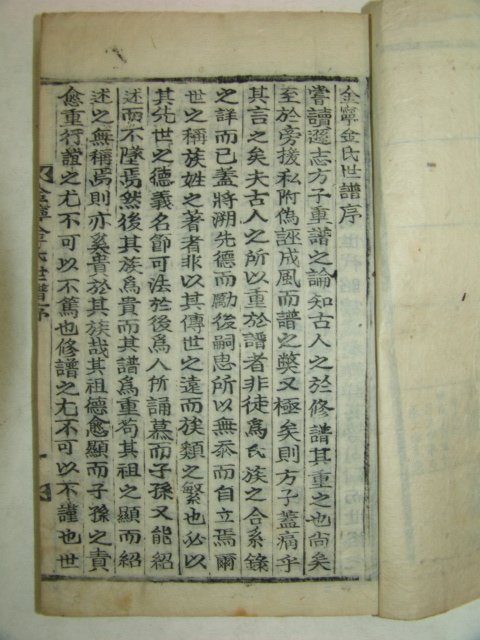 金寧金氏世譜序
嘗讀遜志方子重譜之論知古人之於修譜其重之也尙矣
至於旁援私附偽誣成風而譜之獘又極矣則方子蓋痛乎
其言之矣夫古人之所以重於譜者非徒為氏族之合系錄
之詳而已蓋將溯先德而勵後嗣思所以無忝而自立焉爾
世之稱族姓之著者非以其傳世之遠而族類之繁也必以
其先世之德義名節可法於後為人所誦慕而子孫又能紹
述而不墜焉然後其族為貴而其譜為重苟其祖之顯而紹
述之無稱焉則亦奚貴於其族哉其祖德愈顯而子孫之責
愈重行誼之尤不可以不篤也修譜之尤不可以不謹也世
金寧金氏世譜序
一